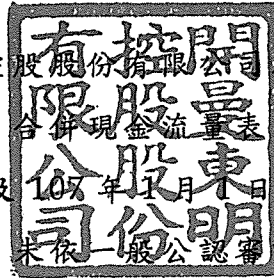 股股份有限公司
合併現金流量表
及 107 年 1 月 1 日
未依一般公認審
開曼東明
控股股份
有限公司